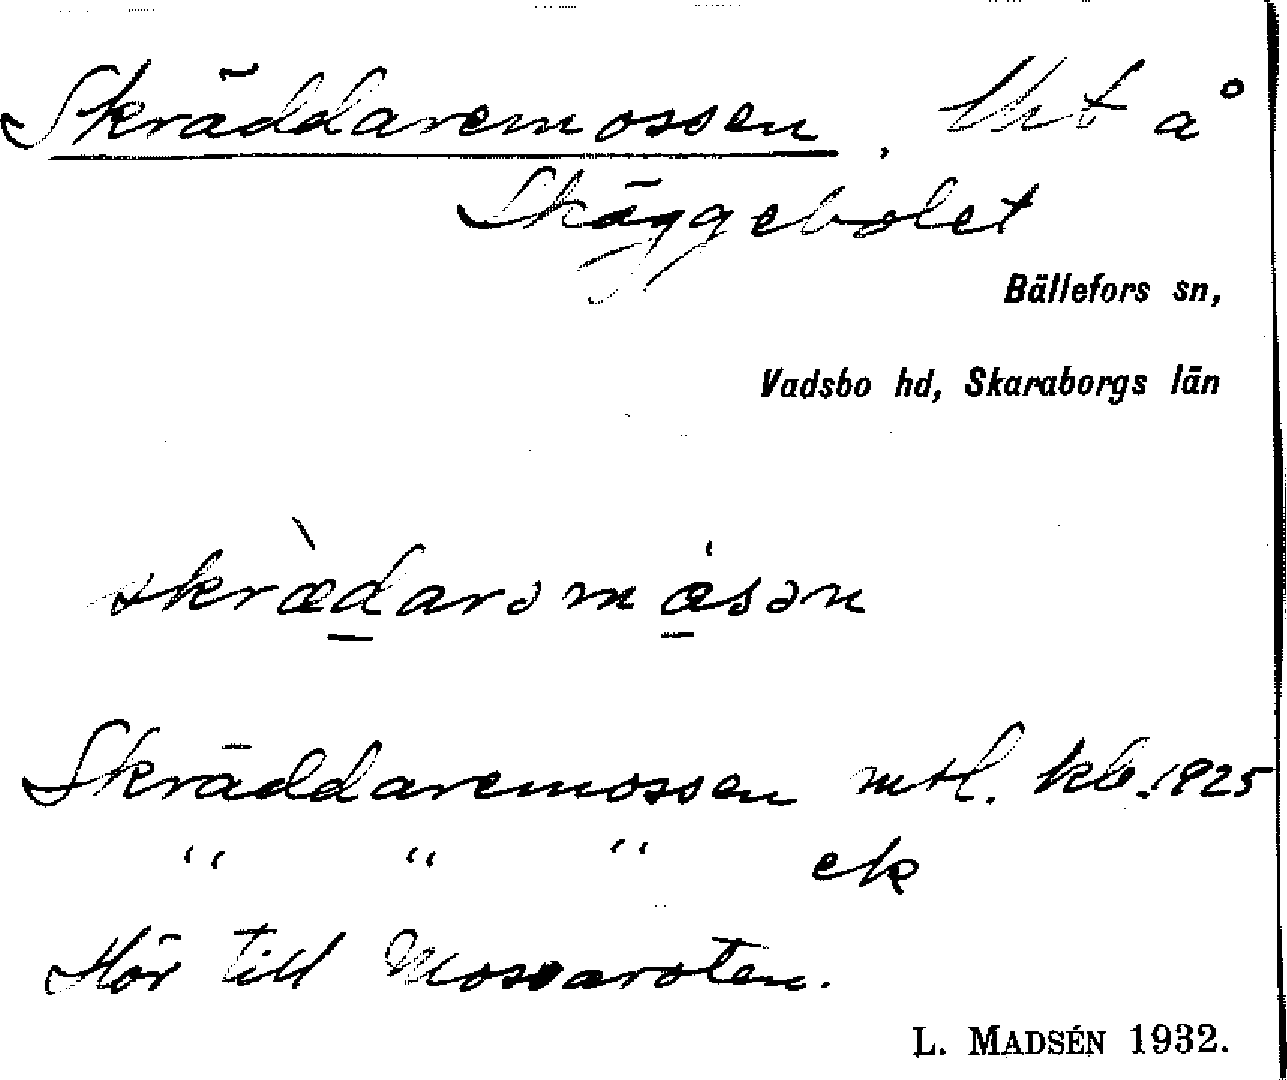 Skräddaremossen, lht å
Skäggebolet
Bällefors sn,
Vadsbo hd, Skaraborgs län
skræ̀darəmåsən
Skräddaremossen mtl. kb. 1925
" " " ek
Hör till Mossaroten.
L. MADSÉN 1932.